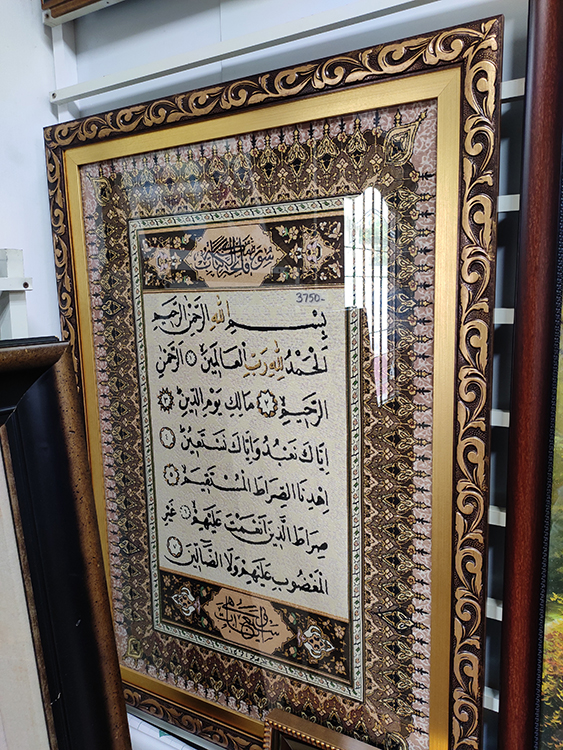 سورة فاتحة الكتاب
3750-
بِسْمِ اللهِ الرَّحْمٰنِ الرَّحِيمِ
الْحَمْدُ لِلّٰهِ رَبِّ الْعَالَمِينَ الرَّحْمٰنِ
الرَّحِيمِ مَالِكِ يَوْمِ الدِّينِ
اِيَّاكَ نَعْبُدُ وَاِيَّاكَ نَسْتَعِينُ
اِهْدِنَا الصِّرَاطَ الْمُسْتَقِيمَ
صِرَاطَ الَّذِينَ اَنْعَمْتَ عَلَيْهِمْ غَيْرِ
الْمَغْضُوبِ عَلَيْهِمْ وَلَا الضَّالِّينَ